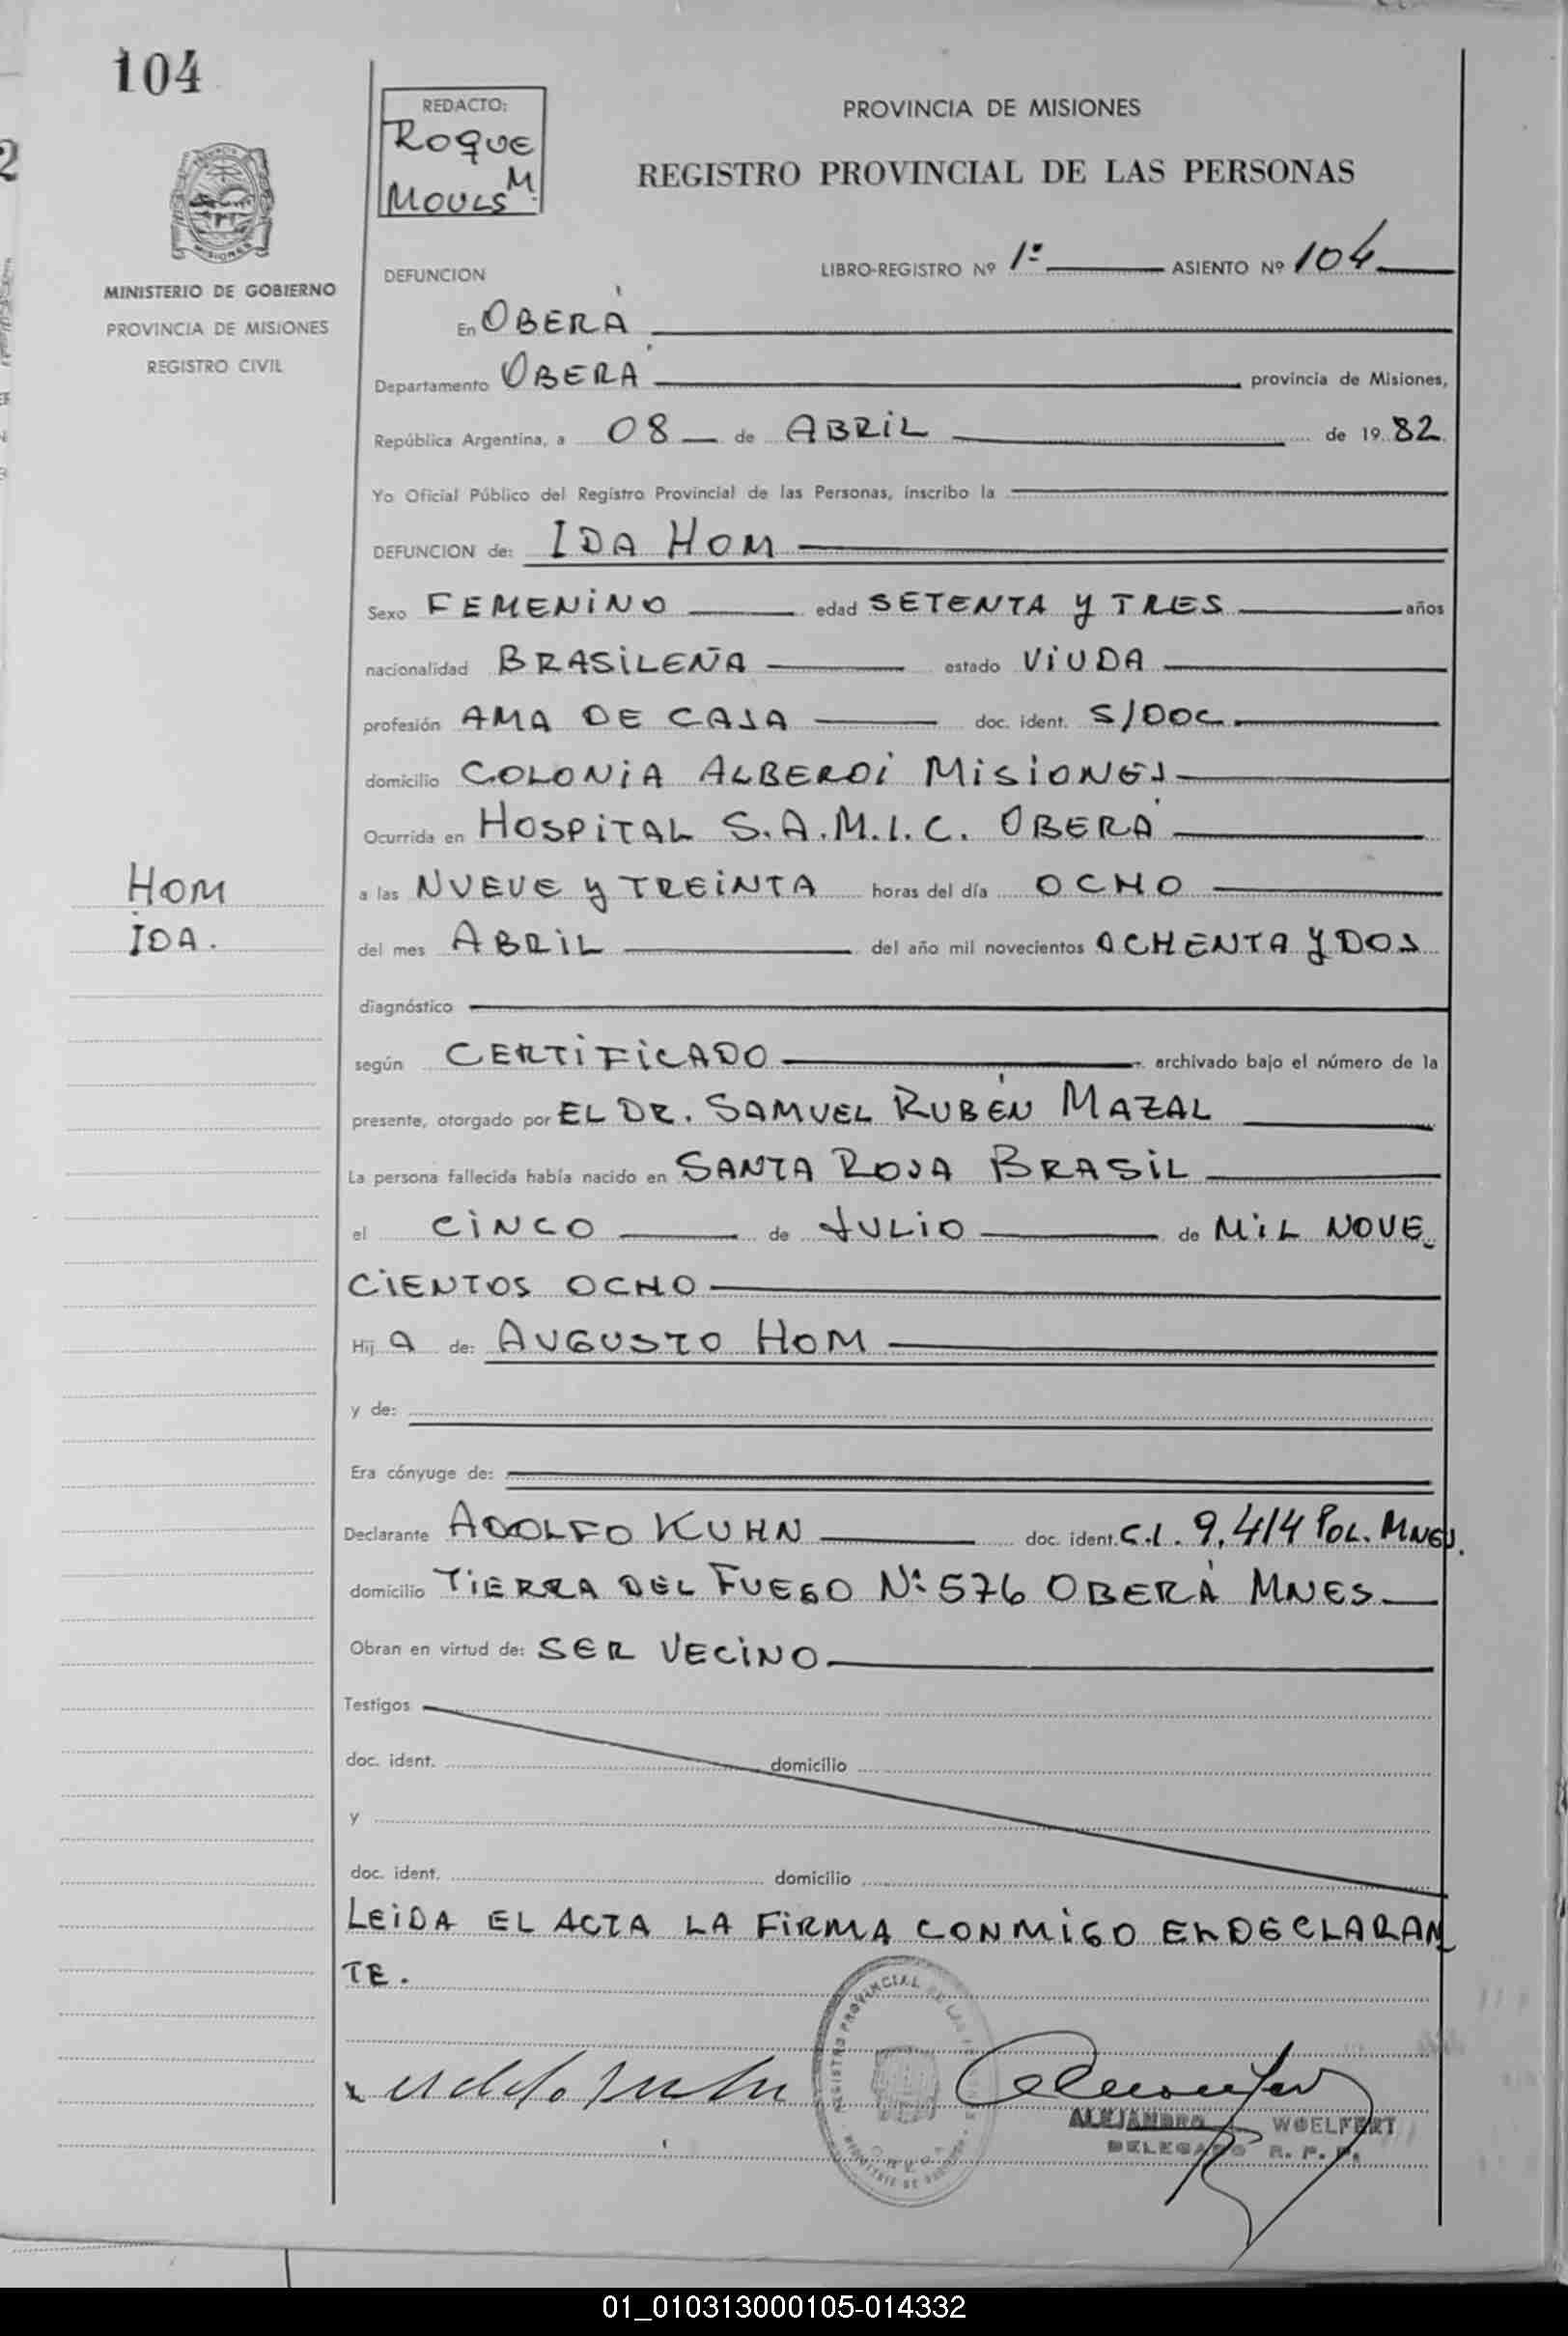 104
REDACTO:
ROQUE
M
MOULS
PROVINCIA DE MISIONES
REGISTRO PROVINCIAL DE LAS PERSONAS
MISIONES
MINISTERIO DE GOBIERNO
PROVINCIA DE MISIONES
REGISTRO CIVIL
DEFUNCION
LIBRO-REGISTRO Nº 1º ASIENTO Nº 104
En OBERÁ
Departamento OBERÁ provincia de Misiones,
República Argentina, a 08 de ABRIL de 1982
Yo Oficial Público del Registro Provincial de las Personas, inscribo la
DEFUNCION de: IDA HOM
Sexo FEMENINO edad SETENTA Y TRES años
nacionalidad BRASILEÑA estado VIUDA
profesión AMA DE CASA doc. ident. S/DOC
domicilio COLONIA ALBERDI MISIONES
Ocurrida en HOSPITAL S.A.M.I.C. OBERÁ
HOM
IDA.
a las NUEVE Y TREINTA horas del día OCHO
del mes ABRIL del año mil novecientos OCHENTA Y DOS
diagnóstico
según CERTIFICADO archivado bajo el número de la
presente, otorgado por EL DR. SAMUEL RUBÉN MAZAL
La persona fallecida había nacido en SANTA ROSA BRASIL
el CINCO de JULIO de MIL NOVE
CIENTOS OCHO
Hij A de: AUGUSTO HOM
y de:
Era cónyuge de:
Declarante ADOLFO KUHN doc. ident. C.I. 9.414 POL. MNES.
domicilio TIERRA DEL FUEGO Nº 576 OBERÁ MNES
Obran en virtud de: SER VECINO
Testigos
doc. ident. domicilio
y
doc. ident. domicilio
LEIDA EL ACTA LA FIRMA CONMIGO EL DECLARAN
TE.
REGISTRO PROVINCIAL DE LAS
ALEJANDRO WOELFERT
DELEGADO R. P. P.
01_010313000105-014332